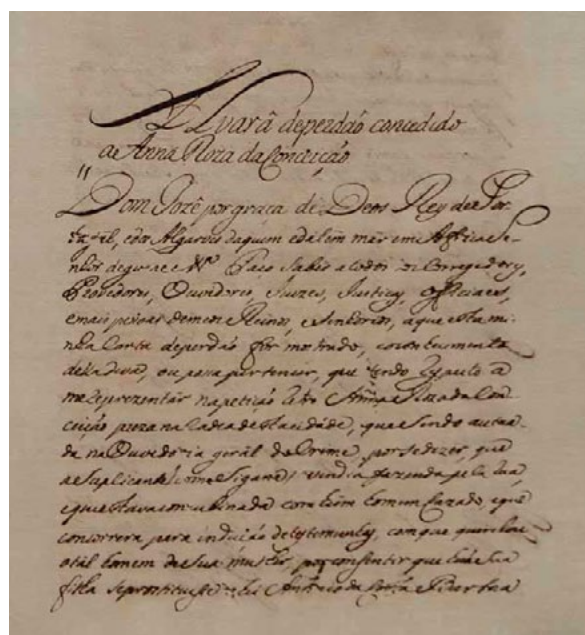 Alvará de perdaõ concedido
a Anna Roza da Conceição
Dom Jozê por graça de Deos Rey de Por-
tugal, e dos Algarves daquem e dalem mar em Africa Se-
nhor de guine &ª Faço saber a todos os Corregedores,
Provedores, Ouvidores, Juizes, Justiças, officiaes,
e mais pessoas de meos Reinos, e Senhorios, a que esta mi-
nha Carta de perdaõ for mostrada, e o conhecimento
della deva, ou possa pertencer, que tendo respeito a
me reprezentar na petição Anna Roza da Con-
ceição preza na Cadea desta cidade, que sendo autua-
da na Ouvidoria geral do Crime, por se dizer, que
a Suplicante como Sigana vendia fazenda pela rua,
e que estava concubinada com hum homem cazado, e que
concorrera para indução de testemunhas, com que
o tal homem de sua mulher, por consentir que sua
filha se prostituisse Antonio da